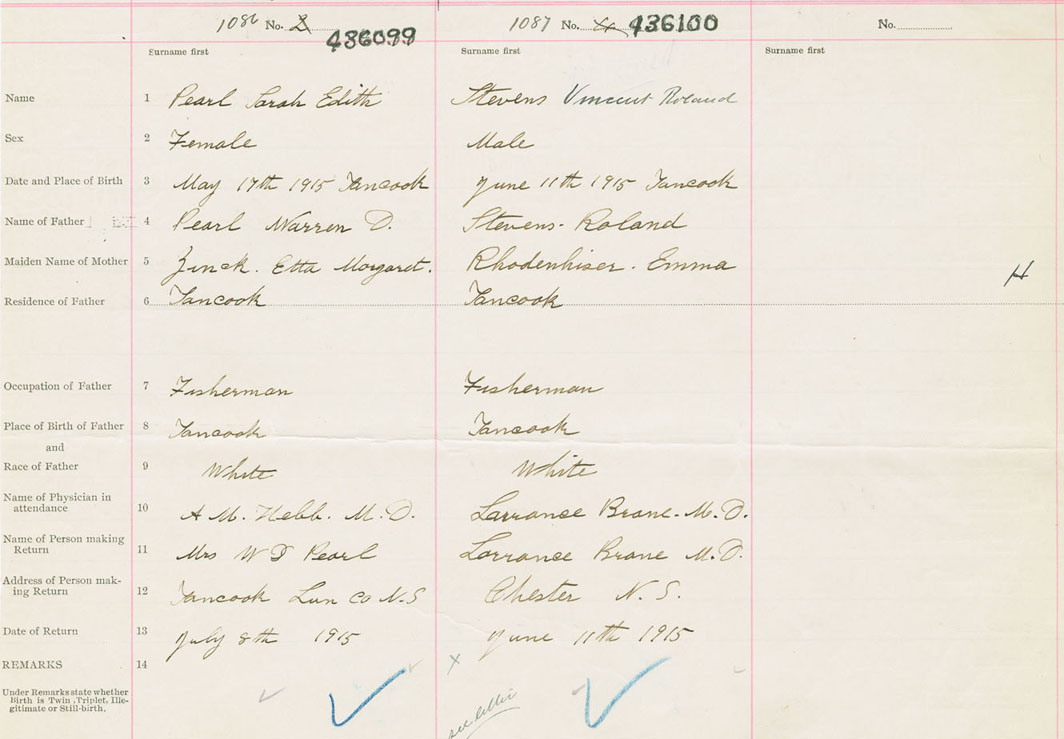 1086 No. 2 436099 1087 No. 4 436100 No.
Surname first Surname first Surname first
Name 1 Pearl Sarah Edith Stevens Vincent Roland
Sex 2 Female Male
Date and Place of Birth 3 May 17th 1915 Tancook June 11th 1915 Tancook
Name of Father 4 Pearl Warren D. Stevens- Roland
Maiden Name of Mother 5 Zinck. Etta Margaret. Rhodenhiser. Emma
H
Residence of Father 6 Tancook Tancook
Occupation of Father 7 Fisherman Fisherman
Place of Birth of Father 8 Tancook Tancook
and
Race of Father 9 White White
Name of Physician in
attendance 10 A M. Hebb. M. D. Larrance Brane. M. D.
Name of Person making
Return 11 Mrs W D Pearl Lorrance Brane M. D.
Address of Person mak-
ing Return 12 Tancook Lun Co N.S Chester N. S.
Date of Return 13 July 8th 1915 June 11th 1915
REMARKS 14 x
Under Remarks state whether
Birth is Twin, Triplet, Ille-
gitimate or Still-birth.
see letter